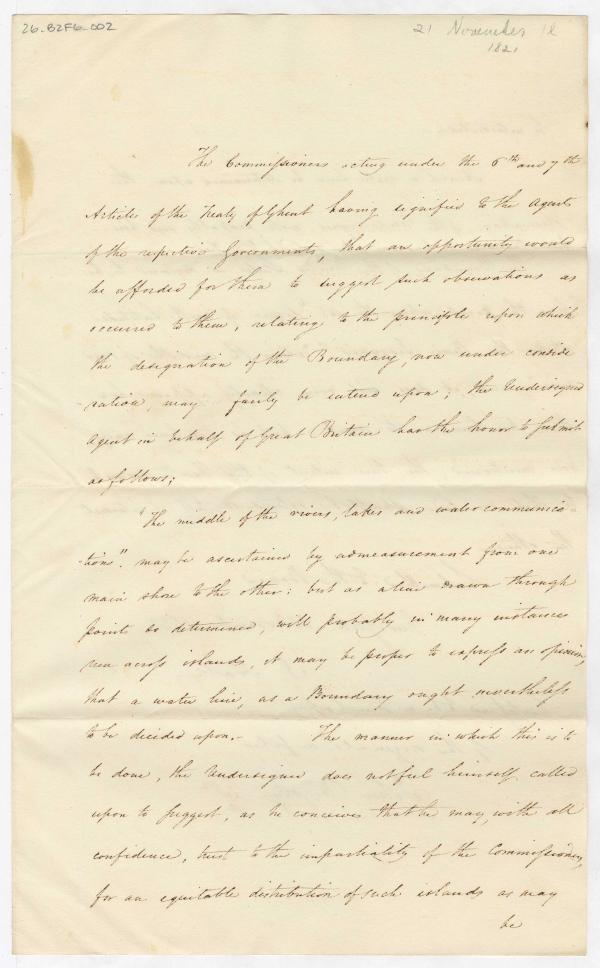 26-B2F6-002
21 November
1821
The Commissioners acting under the 6th and 7th
Articles of the Treaty of Ghent having signified to the Agents
of the respective Governments, that an opportunity would
be afforded for them to suggest such observations as
occurred to them, relating to the principle upon which
the designation of the Boundary, now under conside
-ration, may fairly be entered upon; the Undersigned
Agent in behalf of Great Britain has the honor to submit
as follows;
"The middle of the rivers, lakes and water communica-
-tions". may be ascertained by admeasurement from one
main shore to the other: but as a line drawn through
points so determined, will probably in many instances
run across islands, it may be proper to express an opinion,
that a water line, as a Boundary ought nevertheless
to be decided upon.- The manner in which this is to
be done, the Undersigned does not feel himself called
upon to suggest, as he conceives that he may, with all
confidence, trust to the impartiality of the Commissioners,
for an equitable distribution of such islands as may
be